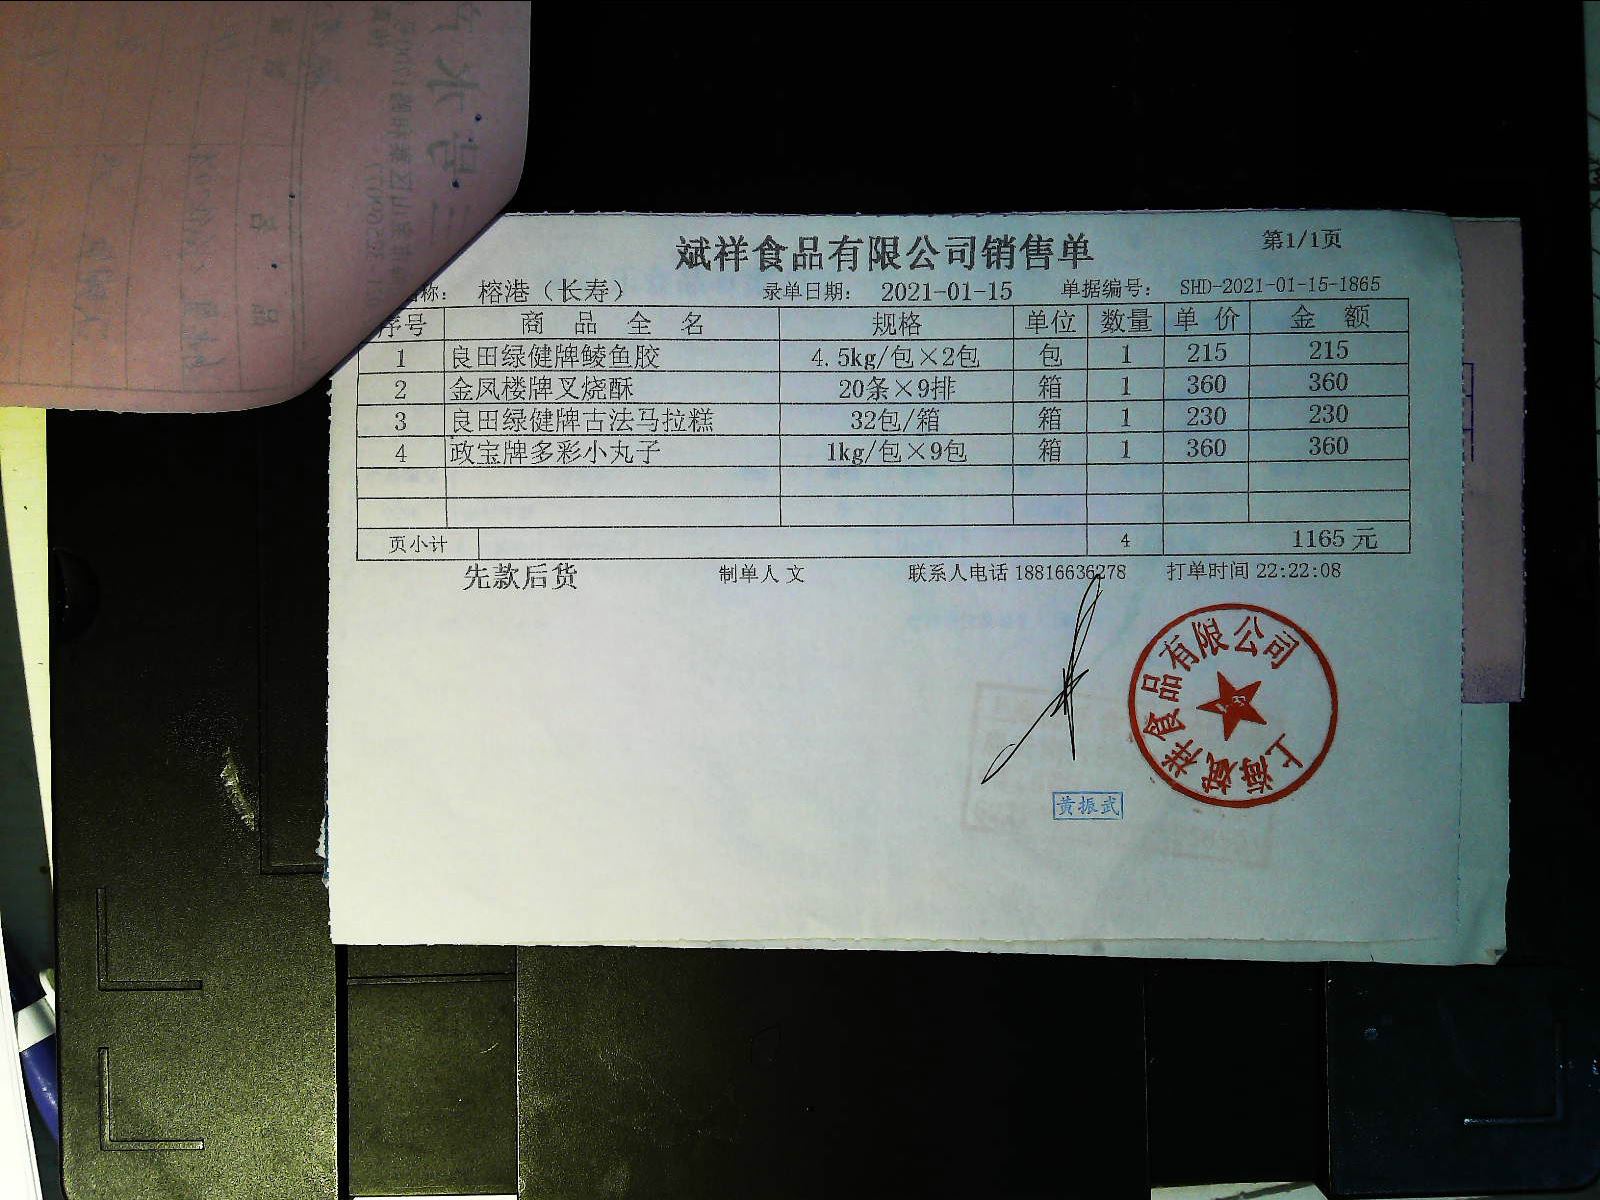 斌祥食品有限公司销售单
第1/1页
称： 榕港（长寿） 录单日期： 2021-01-15 单据编号： SHD-2021-01-15-1865
序号 商品全名 规格 单位 数量 单价 金额
1 良田绿健牌鲮鱼胶 4.5kg/包×2包 包 1 215 215
2 金凤楼牌叉烧酥 20条×9排 箱 1 360 360
3 良田绿健牌古法马拉糕 32包/箱 箱 1 230 230
4 政宝牌多彩小丸子 1kg/包×9包 箱 1 360 360
页小计 4 1165 元
先款后货 制单人 文 联系人电话 18816636278 打单时间 22:22:08
上海斌祥食品有限公司
黄振武